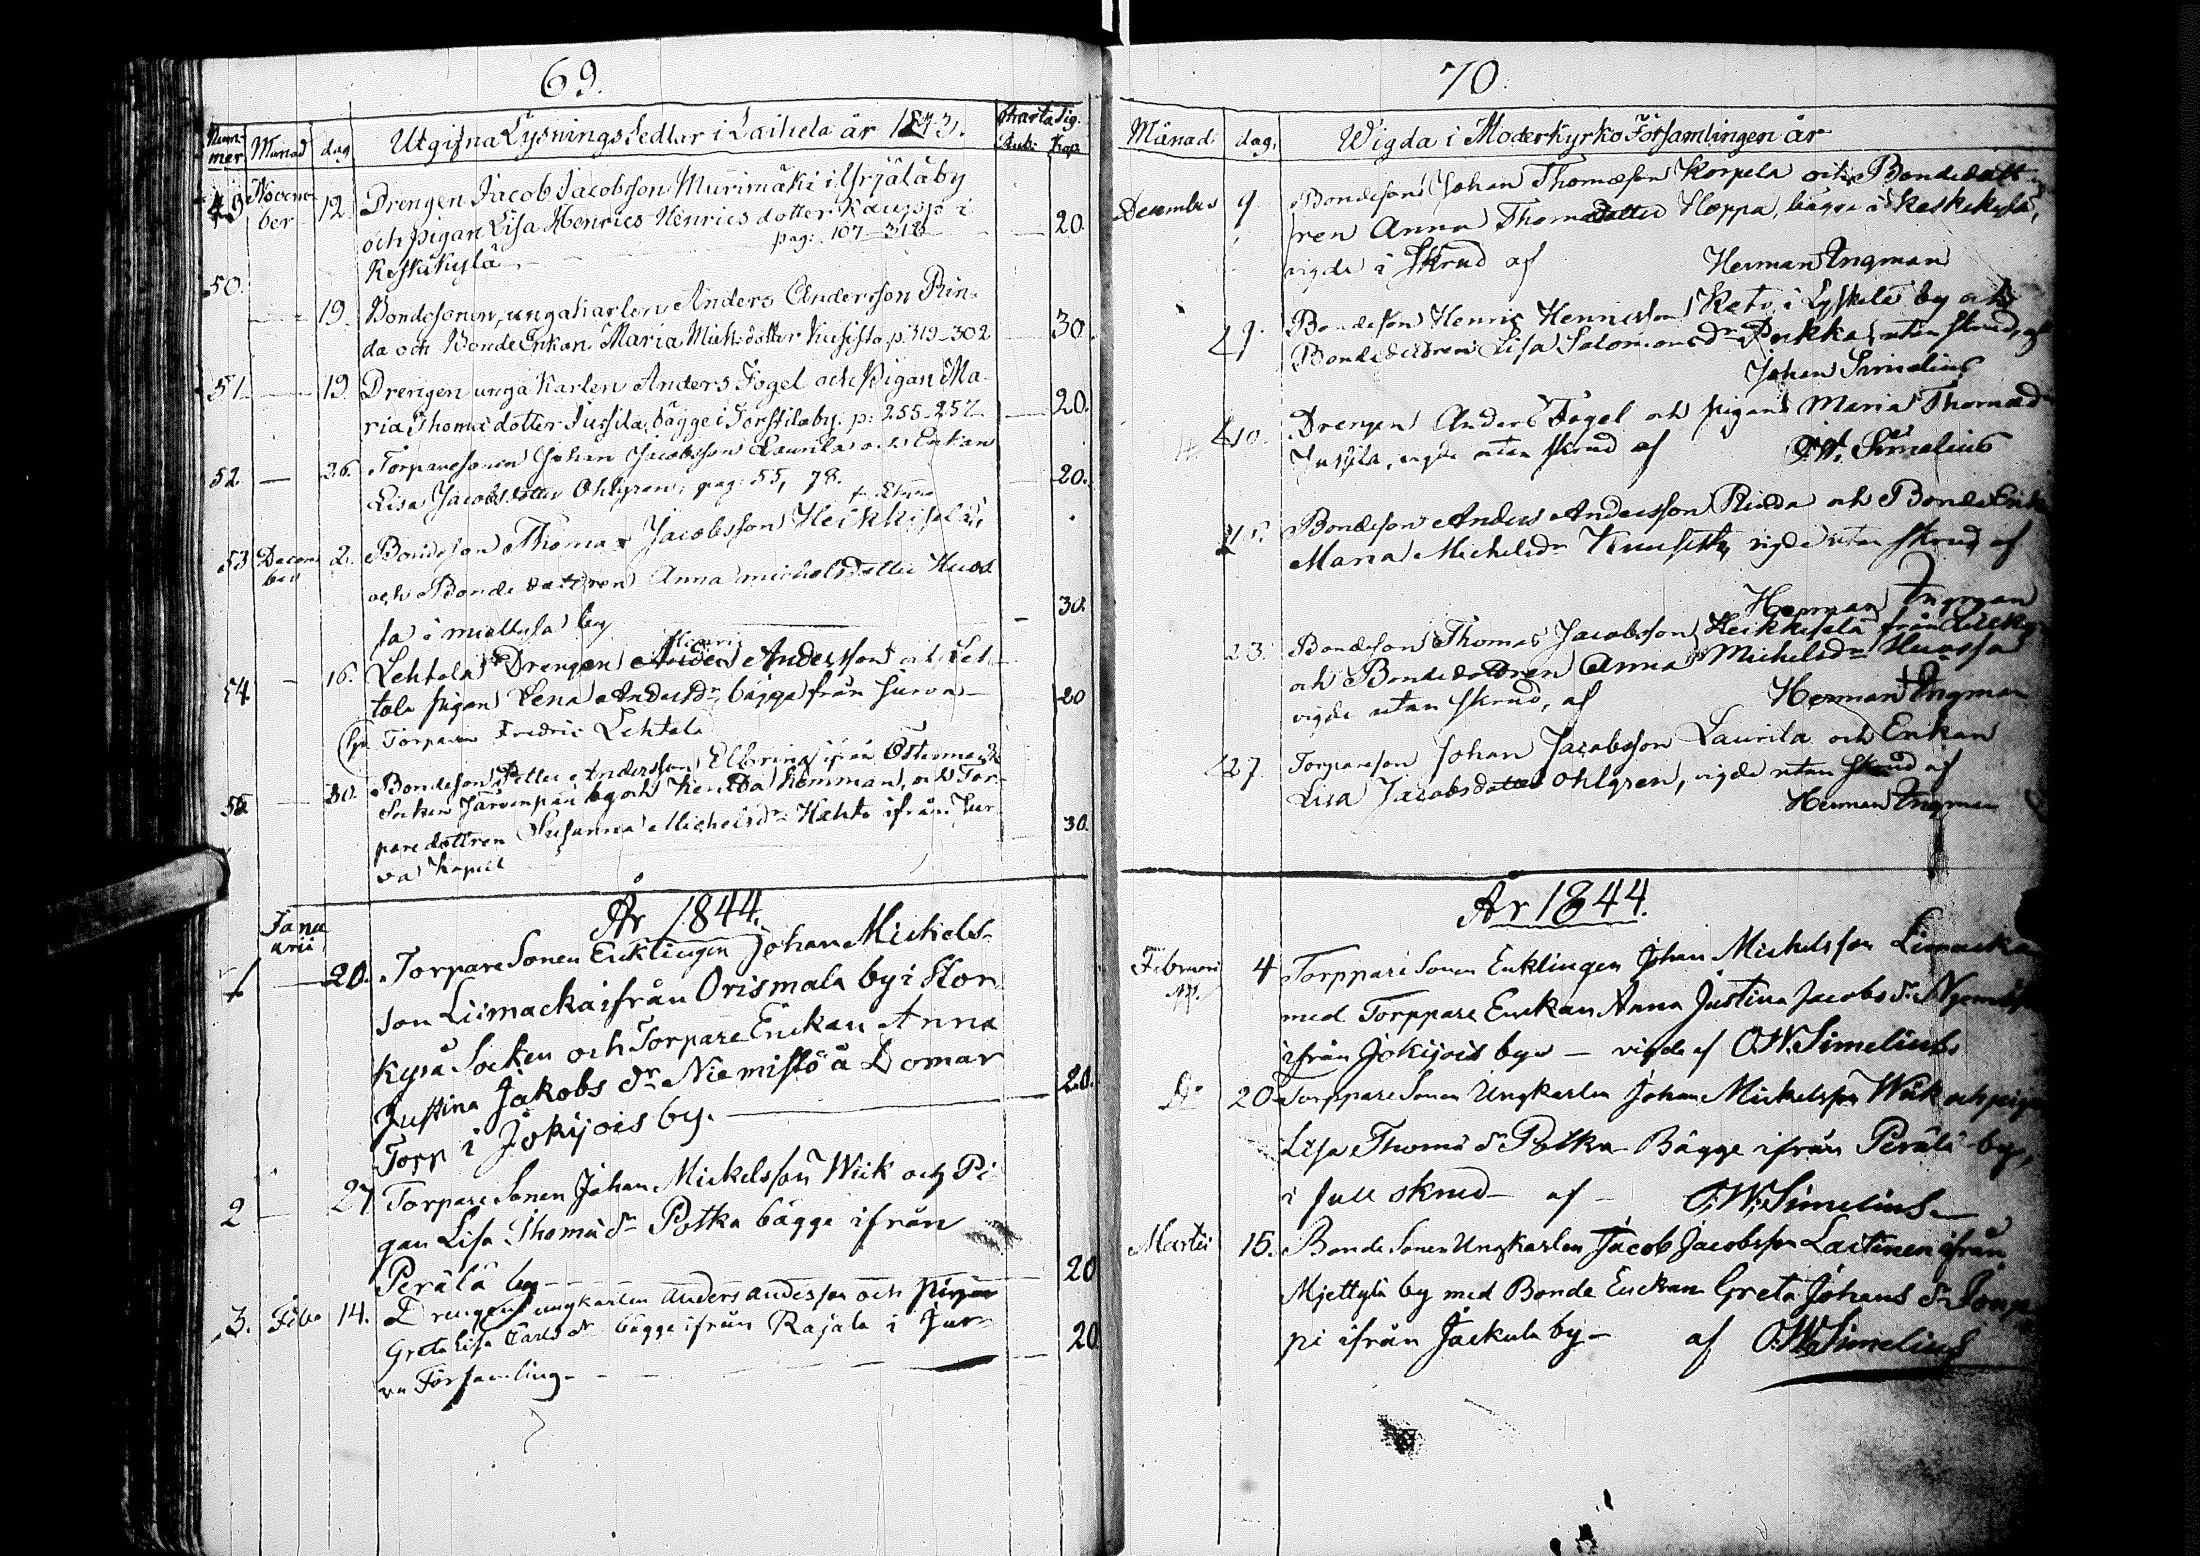 69.
Num-
mer Månad dag Utgifna Lysnings Sedlar i Laihela år 1843. Charta Sig.
Rub: Kop
49 Novem-
ber 12. Drengen Jacob Jacobsson Murimäki i Yrjäläby
och pigan Lisa Henrics Henricsdotter Kauppi i
pag: 107-318 20.
Keskikylä
50.
19. Bondesonen, ungakarlen Anders Andersson Rin-
da och BondeEnkan Maria Mich:dotter Kusisto p: 319-302 30
51 19. Drengen unga Karlen Anders Fogel och Pigan Ma-
ria Thomædotter Jussila, bägge i Torstila by. p: 255-257 20.
52. 26. Torparesonen Johan Jacobsson Laurila och Enkan
Lisa Jacobsdotter Ohlgren; pag: 55, 78. 20.
53 Decem-
ber 2. Bondeson Thomas Jacobsson Heikkilä
och Bondedottren Anna Michelsdotter Huos
sa i Miettylä by 30.
Henric
54 16. Lehtola Drengen Anders Andersson och Leh-
tola pigan Lena Andersdr bägge från Jurva 20
Torparen Fredric Lehtola
55. 30. Bondeson Petter Andersson Elbring ifrån Östermark
Socken Järvenpää by och Kentta hemman, och Tor-
paredottren Susanna Michelsdr Hahto ifrån Jur-
va Kapell 30.
År 1844.
Janu
arii
1 20. Torpare Sonen Enklingen Johan Mickels-
son Liimacka ifrån Orismala by i Stor
kyrå Socken och Torpare Enckan Anna
Justina Jakobs dr Niemistö å Domar
Torp i Jokijois by. 20.
2 27 Torpare Sonen Johan Mickelsson Wiik och Pi
gan Lisa Thomæ dr Potka bägge ifrån
Perälä by 20
3. Febr 14. Drengen ungkarlen Anders Andersson och Pigan
Greta Lisa Carls dr bägge ifrån Rajala i Jur-
va Församling. 20
70.
Månad dag. Wigda i Moderkyrko Församlingen år
December 9 Bondeson Johan Thomæson Korpela och Bondedott
ren Anna Thomædotter Hoppa, bägge i Keskikylä,
vigde i Skrud af Herman Ingman
9. Bondeson Henric Henricsson Keto i by och
Bondedottren Lisa Salomonsdr Pukka, utan skrud, af
Johan Simelius
10. Drengen Anders Fogel och pigan Maria Thomædr
Jussila, vigde utan skrud af O.W. Simelius
Bondeson Anders Andersson Rinda och BondeEnk
Maria Michelsdr vigde utan skrud af
Herman Ingman
23. Bondeson Thomas Jacobsson Heikkilä från
och Bondedottren Anna Michelsdr Huossa
vigde utan skrud, af Herman Ingman
27. Torpareson Johan Jacobsson Laurila och Enkan
Lisa Jacobsdotter Ohlgren, vigde utan skrud af
Herman Ingman
År 1844.
Februari 4 Torppare Sonen Enklingen Johan Michelsson Liimacka
med Torppare Enckan Anna Justina Jacobs dr
ifrån Jokijois by — vigde af O.W. Simelius
Do 20 Torppare Sonen Ungkarlen Johan Mickelsson Wiik och pigan
Lisa Thomæ dr Potka Bägge ifrån Perälä by,
i full skrud af O.W. Simelius
Martii 15. Bonde Sonen Ungkarlen Jacob Jacobsson Laitinen ifrån
Mjettylä by med Bonde Enckan Greta Johans dr Joup
pi ifrån Jackula by af O.W. Simelius